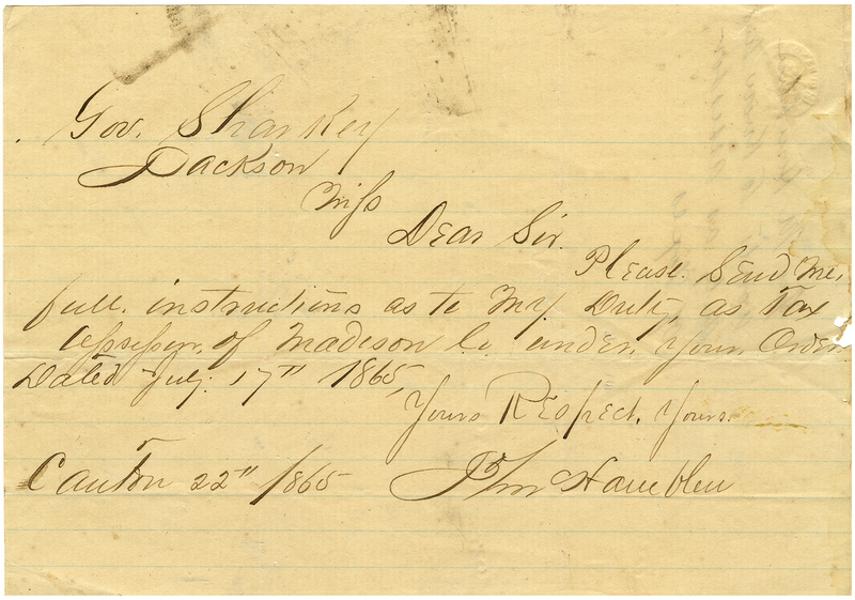 Gov. Sharkey
Jackson
Miss
Dear Sir.
Please. Send Me,
full. instructions as to My. Duty, as Tax
Assessor. of Madison Co. under. your. Order
Dated July. 17" 1865,
Yours Respect. Yours.
Canton 22" /865